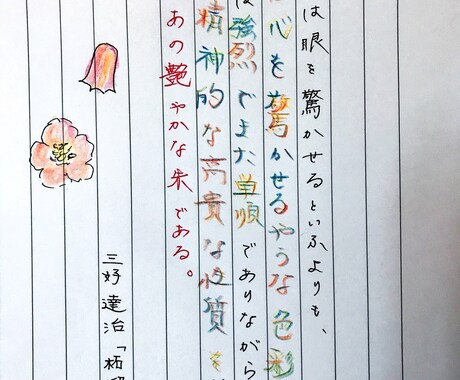 は眼を驚かせるといふよりも、
心を驚かせるやうな色彩
は強烈でまた単順でありながら
精神的な高貴な性質を
あの艶やかな朱である。
三好達治「柘